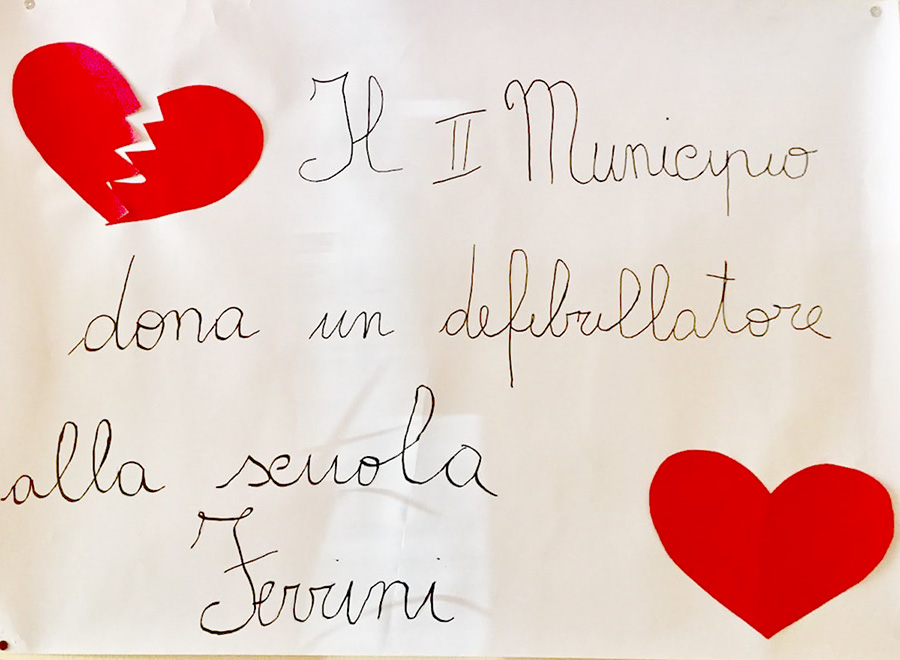 Il II Municipio
dona un defibrillatore
alla scuola
Ferrini